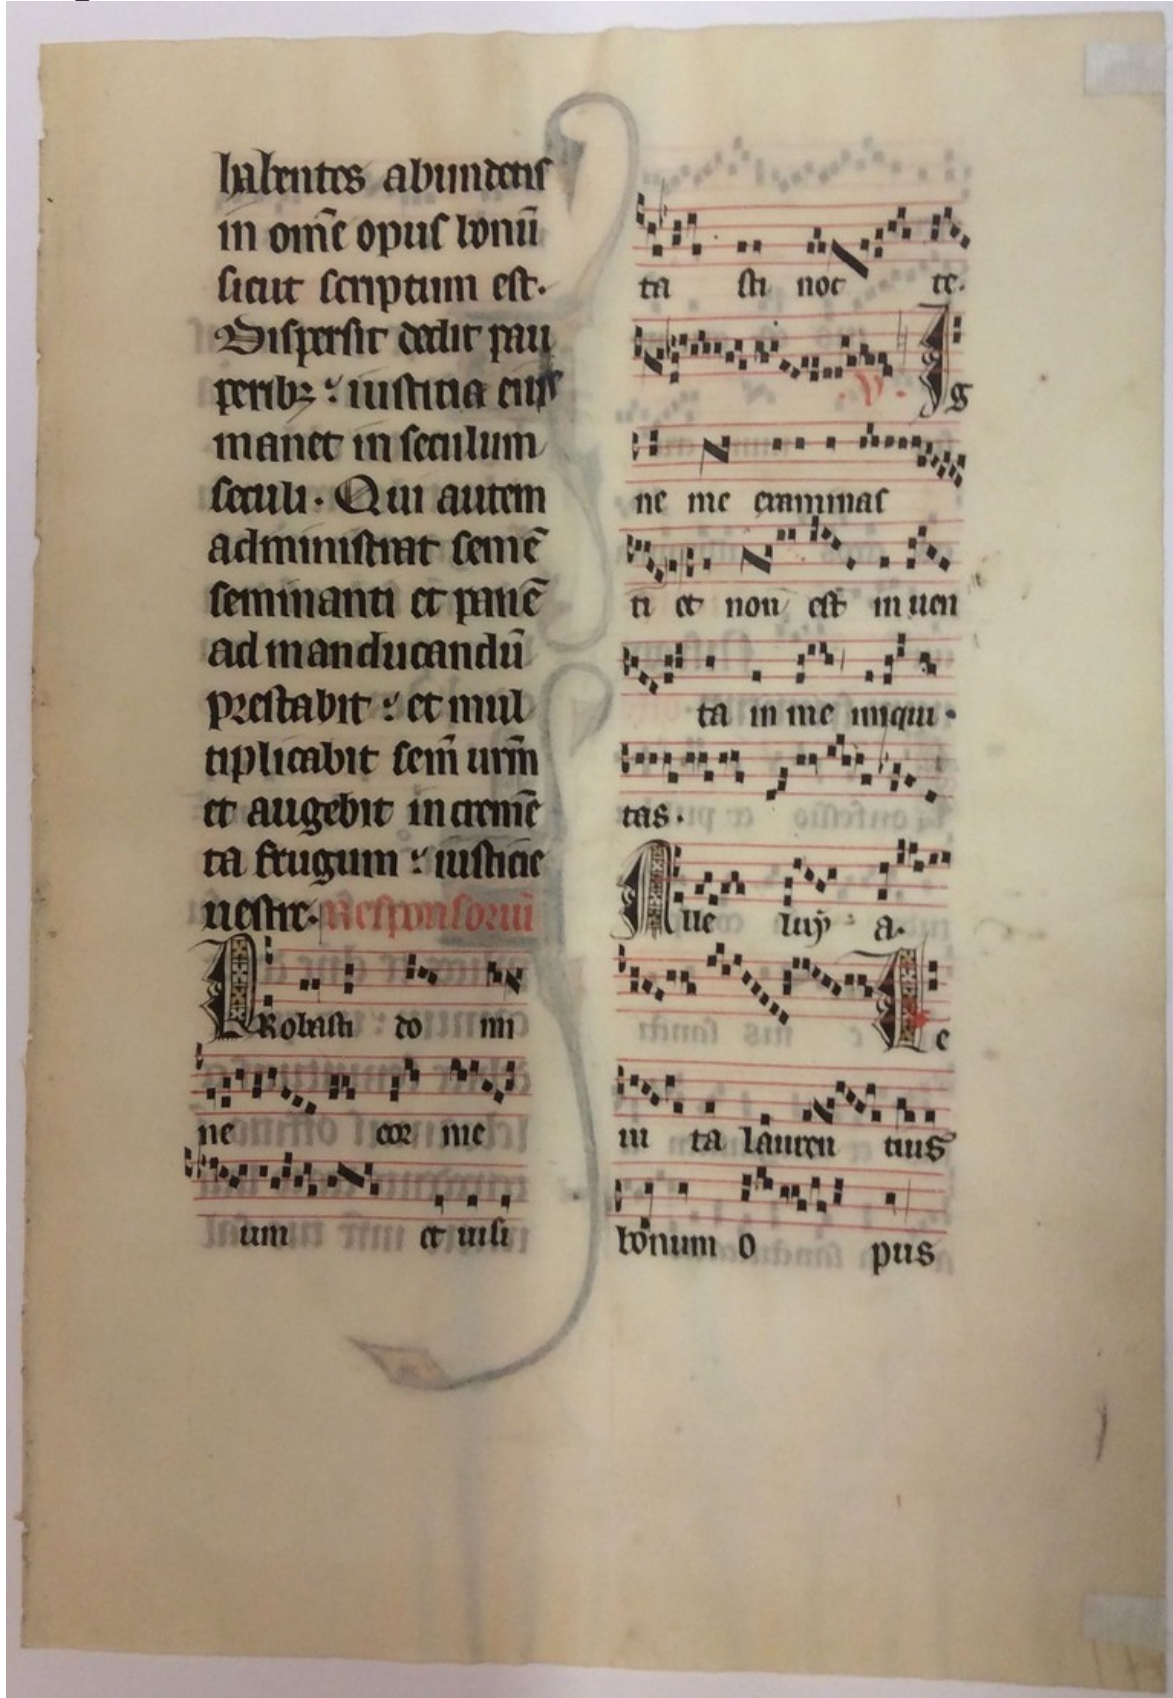 habentes abundetis
in om̄e opus bonū
sicut scriptum est.
Dispersit dedit pau
peribꝫ : iusticia eius
manet in seculum
seculi. Qui autem
administrat semē
seminanti et panē
ad manducandū
prestabit : et mul
tiplicabit sem̄ urm̄
et augebit in cremē
ta frugum : iusticie
uestre. Responsoriū
PRobasti do mi
ne cor me
um et uisi
ta sti noc te.
V. Ig
ne me examinas
ti et non est in uen
ta in me iniqui
tas.
Alle luya a.
Le
ui ta lauren tius
bonum o pus